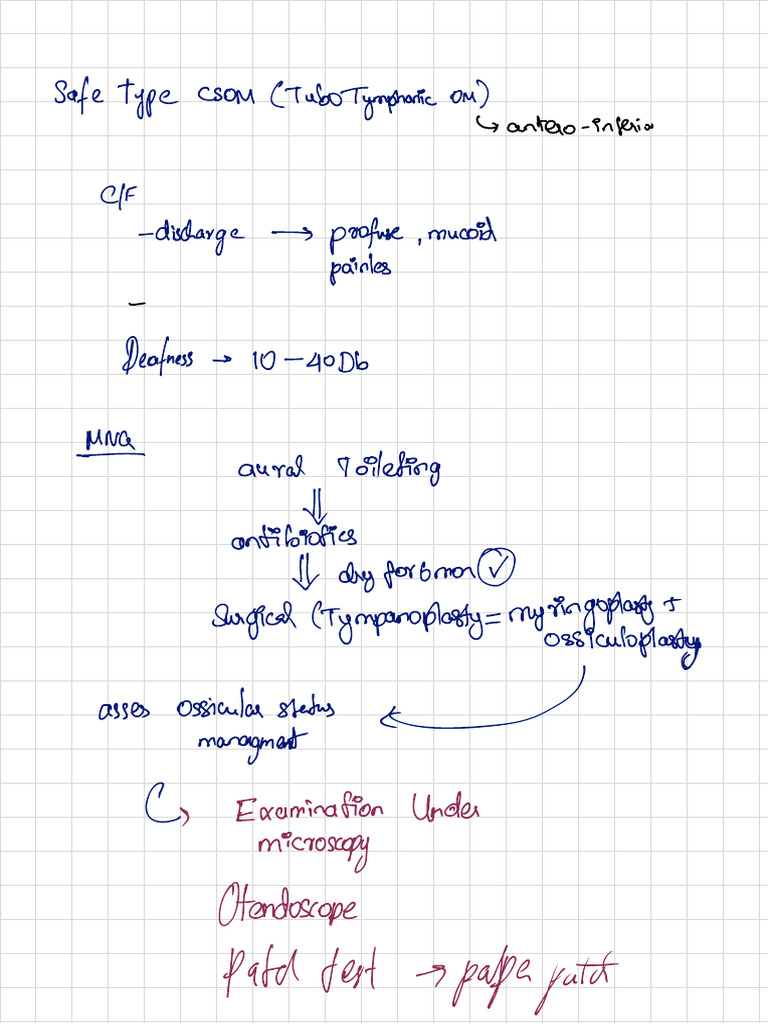 Safe Type CSOM (TuboTymphanic OM)
↳ antero-inferio
C/F
- discharge → profuse, mucoid
painles
-
Deafness → 10 - 40 Db
MNG
aural Toileting
⇓
antibiotics
⇓ dry for 6 mon ✓
Surgical (Tympanoplasty = myringoplasty +
ossiculoplasty
asses ossicular status
managment
Examination Under
microscopy
Otendoscope
Patch test → pape patch